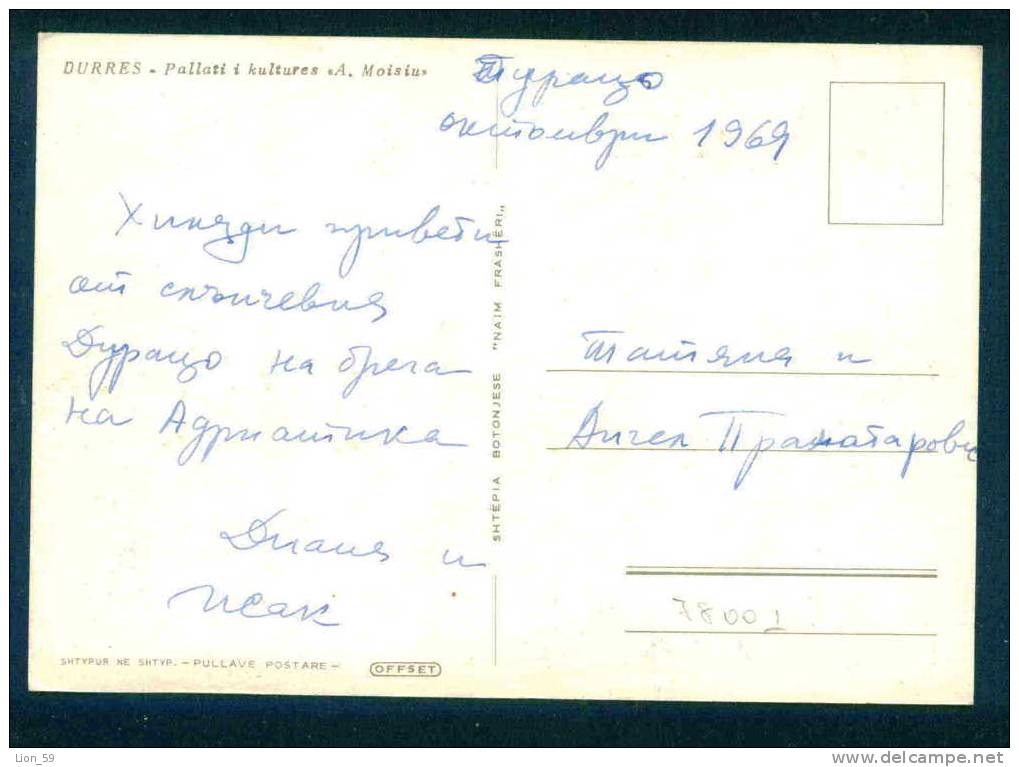 DURRES - Pallati i kultures «A. Moisiu»
Дурацо
октомври 1969
Хиляди привети
от слънчевия
Дурацо на брега
на Адриатика
Диана и
Исак
SHTËPIA BOTONJESE "NAIM FRASHËRI„
Татяна и
Ангел Праматарови
78001
SHTYPUR NE SHTYP. — PULLAVE POSTARE —
OFFSET
Lion_59
www.delcampe.net